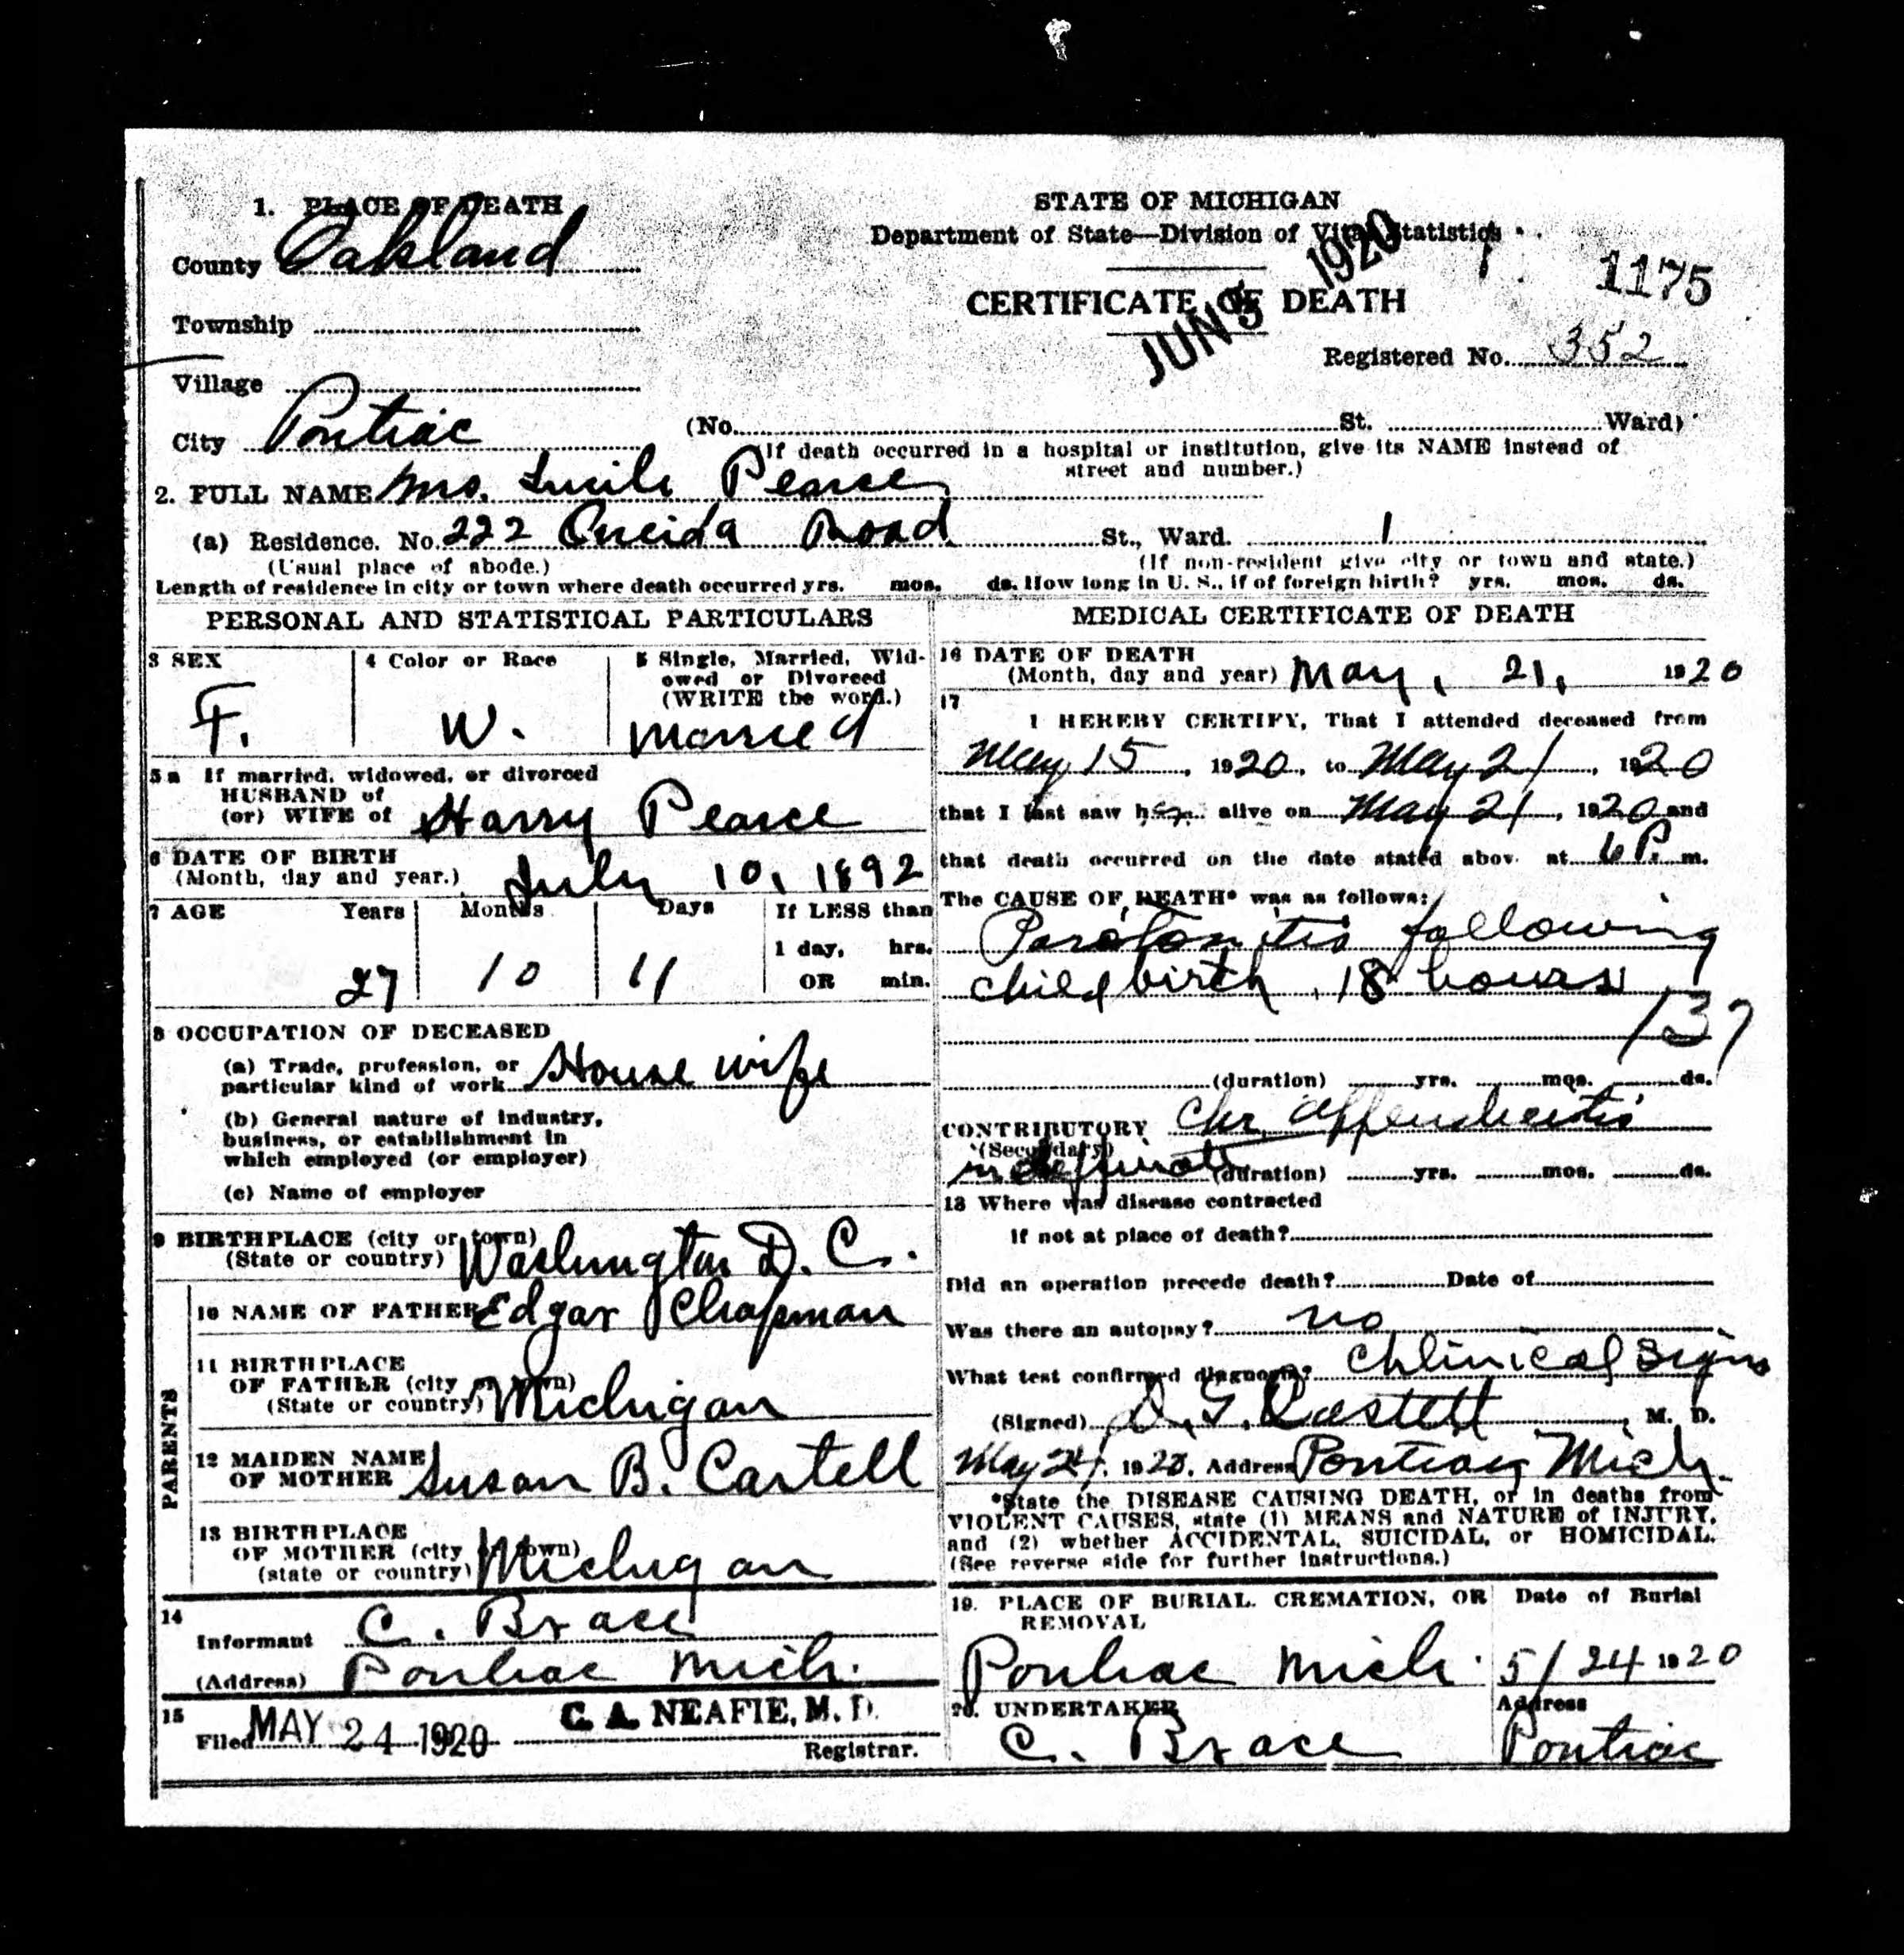 1. PLACE OF DEATH
County Oakland
Township
Village
City Pontiac
STATE OF MICHIGAN
Department of State—Division of Vital Statistics
CERTIFICATE OF DEATH
JUN 5 1920
1175
Registered No. 352
(No. St. Ward)
(If death occurred in a hospital or institution, give its NAME instead of
street and number.)
2. FULL NAME Mrs. Lucile Pearce
(a) Residence. No. 222 Oneida Road St., Ward. 1
(Usual place of abode.) (If non-resident give city or town and state.)
Length of residence in city or town where death occurred yrs. mos. ds. How long in U. S., if of foreign birth? yrs. mos. ds.
PERSONAL AND STATISTICAL PARTICULARS
3 SEX
F.
4 Color or Race
W.
5 Single, Married, Wid-
owed or Divorced
(WRITE the word.)
Married
5a If married, widowed, or divorced
HUSBAND of
(or) WIFE of Harry Pearce
6 DATE OF BIRTH
(Month, day and year.) July 10, 1892
7 AGE Years Months Days If LESS than
1 day, hrs.
27 10 11 OR min.
8 OCCUPATION OF DECEASED
(a) Trade, profession, or
particular kind of work House wife
(b) General nature of industry,
business, or establishment in
which employed (or employer)
(c) Name of employer
9 BIRTHPLACE (city or town)
(State or country) Washington D. C.
PARENTS
10 NAME OF FATHER Edgar Chapman
11 BIRTHPLACE
OF FATHER (city or town)
(State or country) Michigan
12 MAIDEN NAME
OF MOTHER Susan B. Castell
13 BIRTHPLACE
OF MOTHER (city or town)
(state or country) Michigan
14
Informant C. Brace
(Address) Pontiac Mich.
15
Filed MAY 24 1920 C. A. NEAFIE, M. D.
Registrar.
MEDICAL CERTIFICATE OF DEATH
16 DATE OF DEATH
(Month, day and year) May, 21, 1920
17
I HEREBY CERTIFY, That I attended deceased from
May 15, 1920, to May 21, 1920
that I last saw her alive on May 21, 1920 and
that death occurred on the date stated above at 6 P. m.
The CAUSE OF DEATH* was as follows:
Peratonitis following
child birth, 18 hours
137
(duration) yrs. mos. ds.
CONTRIBUTORY Chr. Appendicitis
(Secondary)
indeffinate (duration) yrs. mos. ds.
18 Where was disease contracted
if not at place of death?
Did an operation precede death? Date of
Was there an autopsy? no
What test confirmed diagnosis? Chlinical Signs
(Signed) Castell, M. D.
May 24, 1920. Address Pontiac Mich.
*State the DISEASE CAUSING DEATH, or in deaths from
VIOLENT CAUSES, state (1) MEANS and NATURE of INJURY,
and (2) whether ACCIDENTAL, SUICIDAL, or HOMICIDAL.
(See reverse side for further instructions.)
19. PLACE OF BURIAL, CREMATION, OR
REMOVAL
Pontiac Mich.
Date of Burial
5/24 1920
20. UNDERTAKER
C. Brace
Address
Pontiac